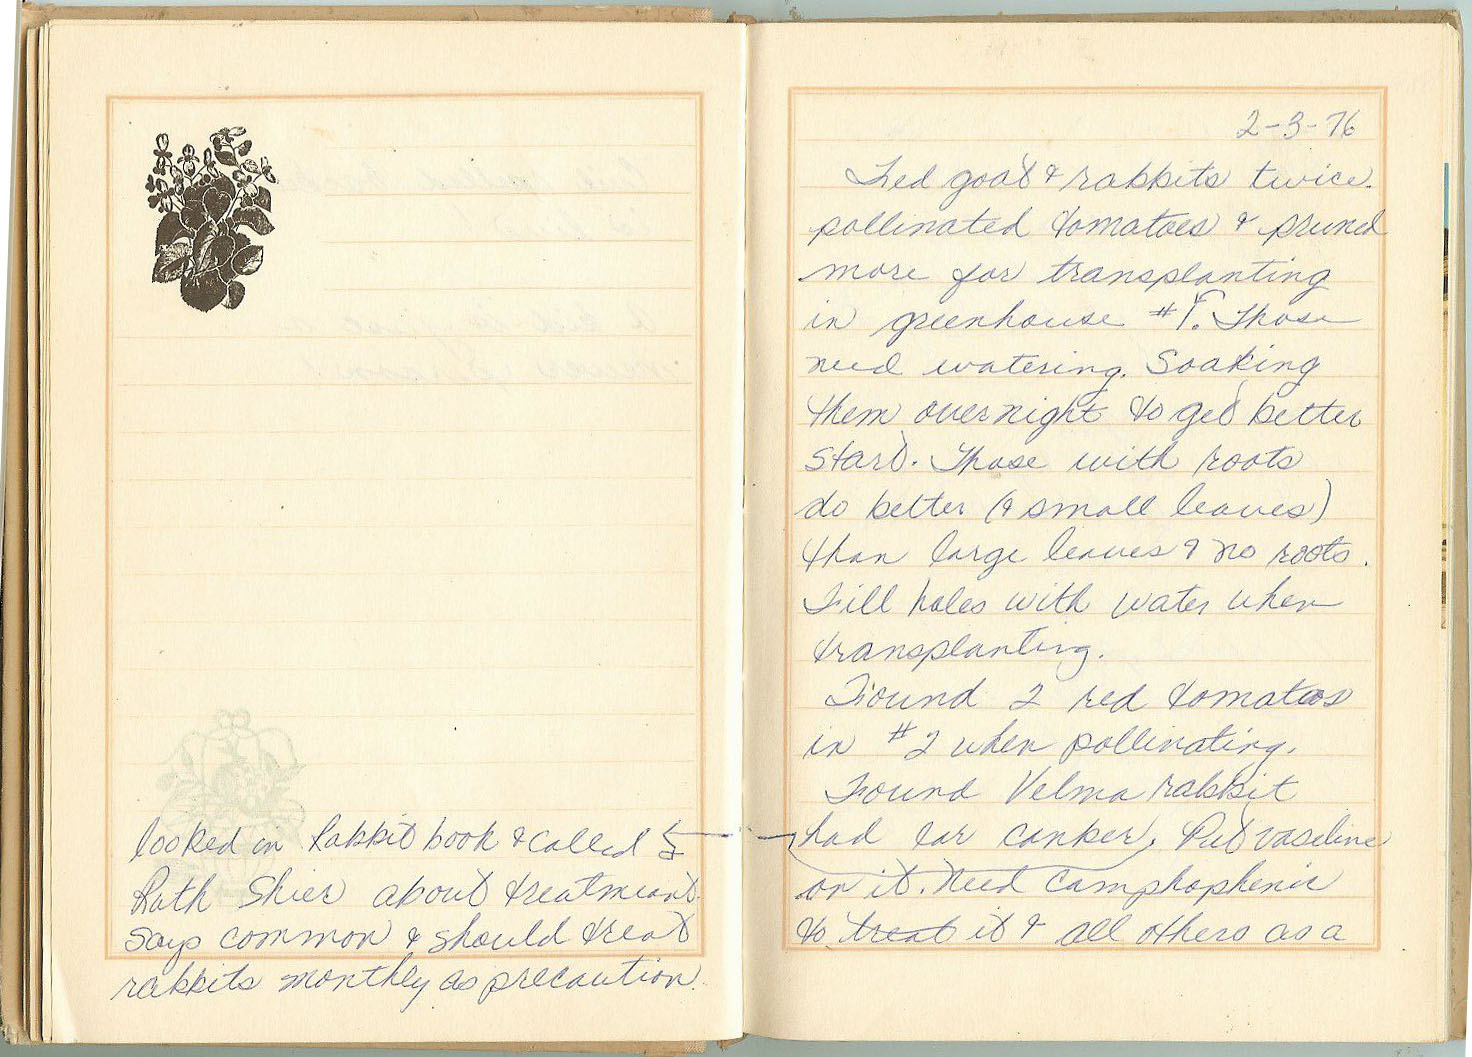 looked in Rabbit book & called
Ruth Shier about treatment.
Says common & should treat
rabbits monthly as precaution.
2-3-76
Fed goat & rabbits twice.
pollinated tomatoes & pruned
more for transplanting
in greenhouse #1. Those
need watering. Soaking
them overnight to get better
start. Those with roots
do better (& small leaves)
than large leaves & no roots.
Fill holes with water when
transplanting.
Found 2 red tomatoes
in #2 when pollinating.
Found Velma rabbit
had ear canker. Put vaseline
on it. Need Camphophenic
to treat it & all others as a